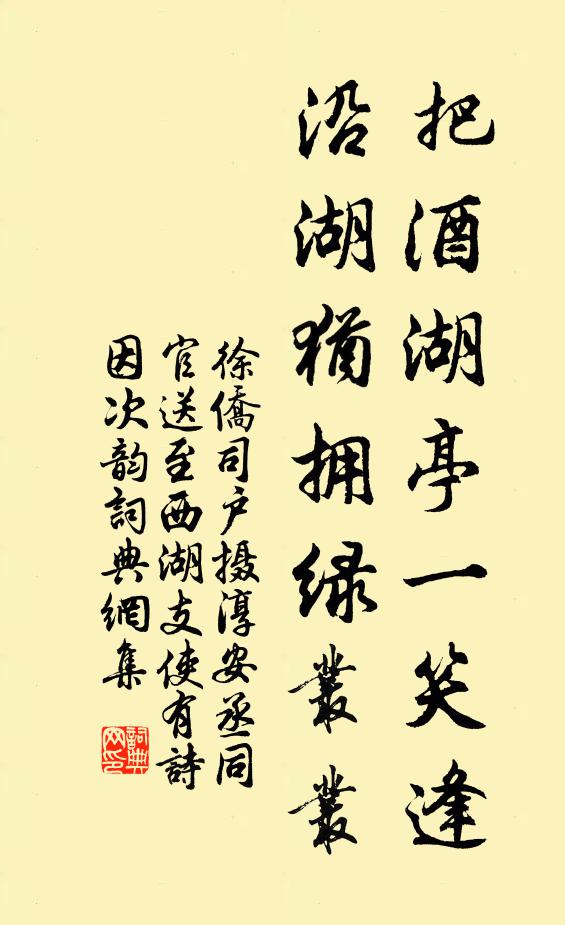 把酒湖亭一笑逢
沿湖猶拥緑叢叢
徐僑司户摄淳安丞同
官送至西湖支使有詩
因次韵詞典網集
詞典网印